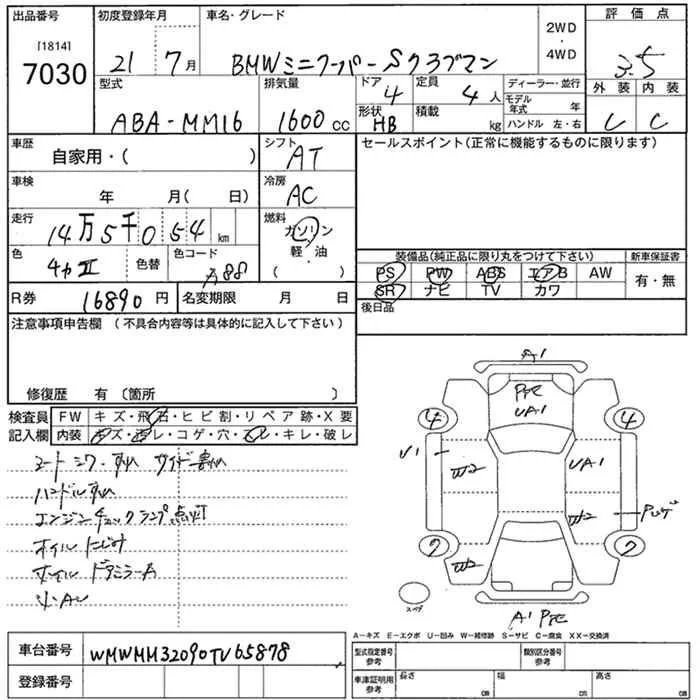 出品番号 初度登録年月 車名・グレード 2WD・4WD 評価点
[1814]
7030 21 7月 BMWミニクーパーSクラブマン 3.5
型式 排気量 ドア 4 定員 4人 ディーラー・並行 外装 内装
ABA-MM16 1600cc 形状 HB 積載 kg モデル年式 年 C
ハンドル 左・右
車歴 自家用・( ) シフト AT セールスポイント(正常に機能するものに限ります)
車検 年 月( 日) 冷房 AC
走行 14万5千054km 燃料 ガソリン 軽・油 ( )
色 色替 色コード A88
装備品(純正品に限り丸をつけて下さい) 新車保証書
PS PW ABS エアB AW 有・無
SR ナビ TV カワ
R券 16890円 名変期限 月 日 後日品
注意事項申告欄 (不具合内容等は具体的に記入して下さい)
修復歴 有 (箇所 )
検査員記入欄 FW キズ・飛石・ヒビ割・リペア跡・X要
内装 キズ・汚レ・コゲ・穴・スレ・キレ・破レ
シートシワ・すれ サイド割れ
ハンドルすれ
エンジンチェックランプ点灯
オイルにじみ
ホイル ドアミラーA
A1
UA1
4 4
U1 W2 UA1
W2
7 7
W2
スペア
A1
A-キズ E-エクボ U-凹み W-補修跡 S-サビ C-腐食 XX-交換済
車台番号 WMWMM32090TV65878
登録番号
型式指定番号 参考 類別区分番号 参考
車庫証明用 参考 長さ cm 幅 cm 高さ cm